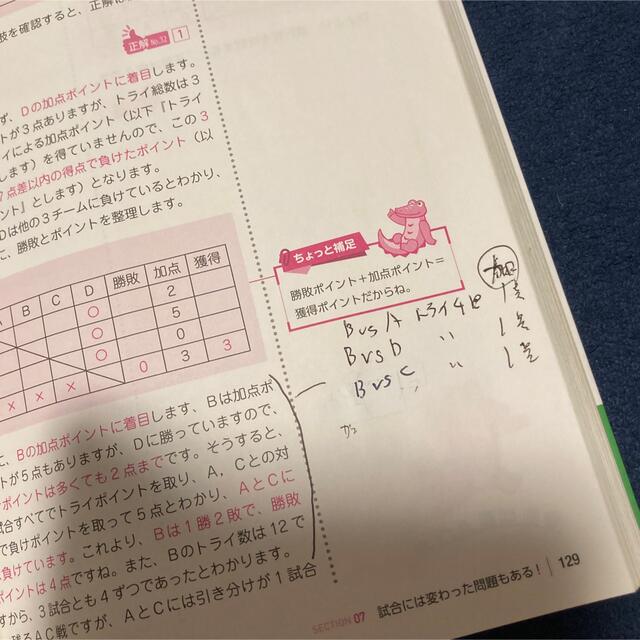 肢を確認すると、正解は
正解 No.32 1
ず、Dの加点ポイントに着目します。
トが3点ありますが、トライ総数は3
イによる加点ポイント（以下『トライ
します）を得ていませんので、この3
7点差以内の得点で負けたポイント（以
ント』とします）となります。
Dは他の3チームに負けているとわかり、
こ、勝敗とポイントを整理します。
B C D 勝敗 加点 獲得
○ 2
○ 5
○ 0
× × × 0 3 3
ちょっと補足
勝敗ポイント＋加点ポイント＝
獲得ポイントだからね。
B vs A トライ4
B vs D 〃 1点
B vs C 〃 1点
こ、Bの加点ポイントに着目します、Bは加点ポ
トが5点もありますが、Dに勝っていますので、
ポイントは多くても2点までです。そうすると、
試合すべてでトライポイントを取り、A，Cとの対
で負けポイントを取って5点とわかり、AとCに
負けています。これより、Bは1勝2敗で、勝敗
ポイントは4点ですね。また、Bのトライ数は12で
すから、3試合とも4ずつであったとわかります。
残るAC戦ですが、AとCには引き分けが1試合
SECTION 07 試合には変わった問題もある！ 129